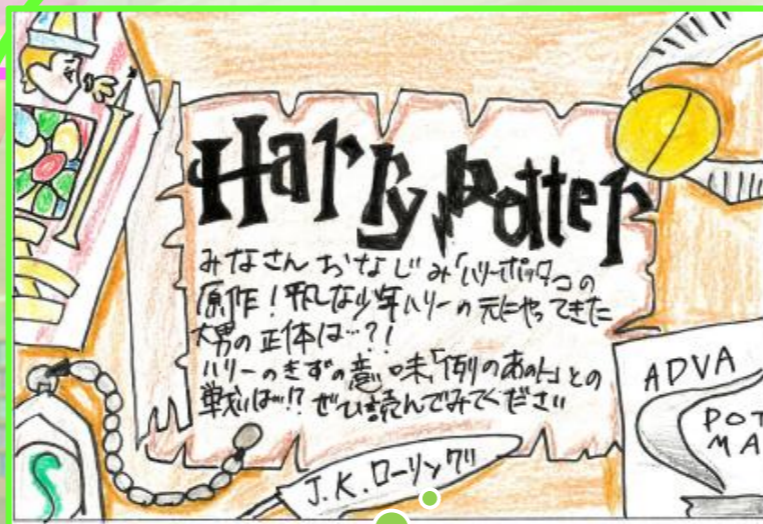 Harry Potter
みなさんおなじみ「ハリーポッター」の
原作！平凡な少年ハリーの元にやってきた
大男の正体は…？！
ハリーのきずの意味、「例のあの人」との
戦いは…!? ぜひ読んでみてください
J.K.ローリング
ADVA
POT
MA
S